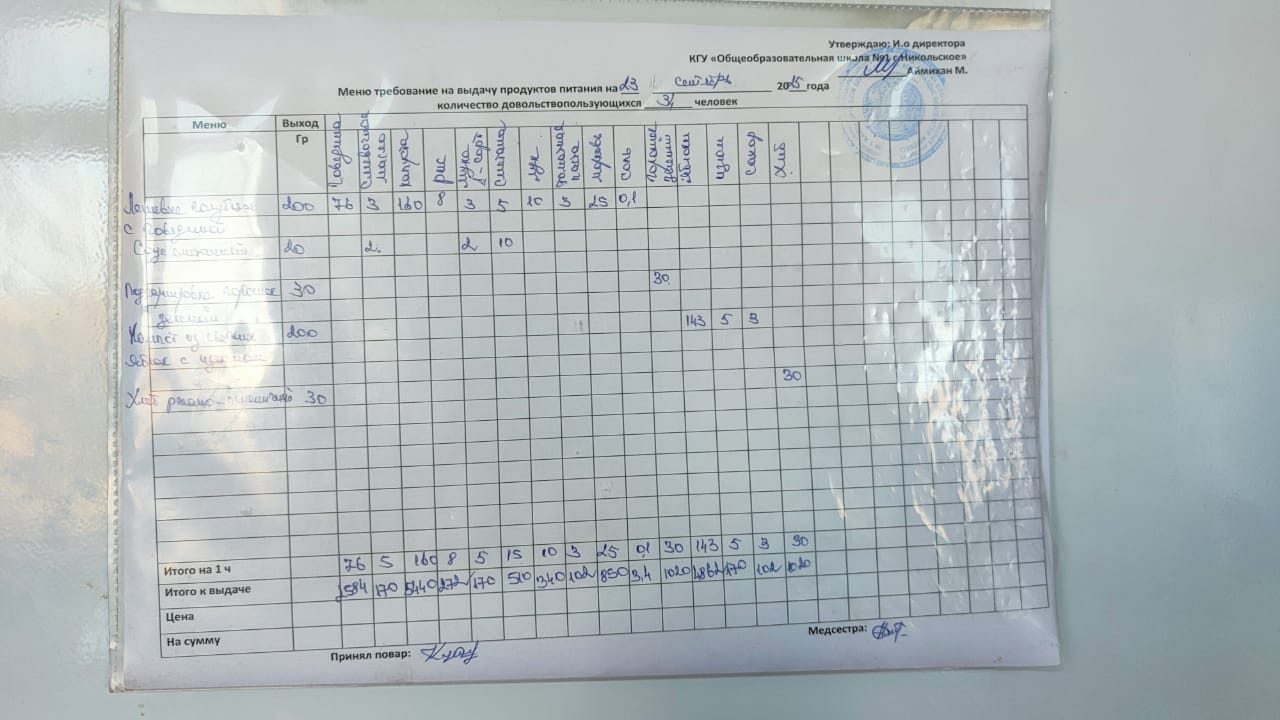 Утверждаю: И.о директора
КГУ «Общеобразовательная школа №1 с Никольское»
Аймихан М.
Меню требование на выдачу продуктов питания на 23 сентябрь 2025 года
количество довольствопользующихся 34 человек
Меню Выход Гр говядина сливочное масло капуста рис мука 1-сорт сметана лук томатная паста морковь соль горошек зеленый яблоки изюм сахар хлеб
Ленивые голубцы 200 76 3 160 8 3 5 10 3 25 0,1
с говядиной
Соус сметанный 20 2 2 10
30
Подгарнировка горошек 30
зеленый
143 5 3
Компот из свежих 200
яблок с изюмом
30
Хлеб ржано-пшеничный 30
Итого на 1 ч 76 5 160 8 5 15 10 3 25 0,1 30 143 5 3 30
Итого к выдаче 2584 170 5440 272 170 510 340 102 850 3,4 1020 4862 170 102 1020
Цена
На сумму
Принял повар:
Медсестра: